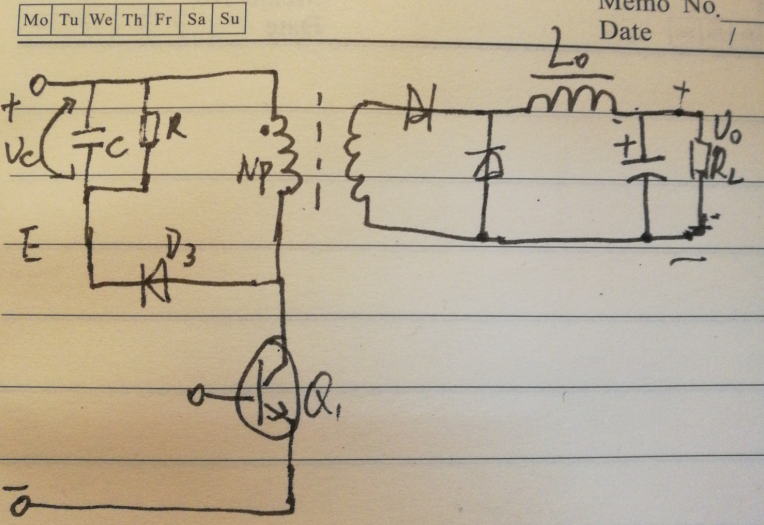 Mo Tu We Th Fr Sa Su
Memo No.
Date /
L₀
+
+
Uc
C
R
NP
+
U₀
R_L
E
D₃
-
-
Q₁
-